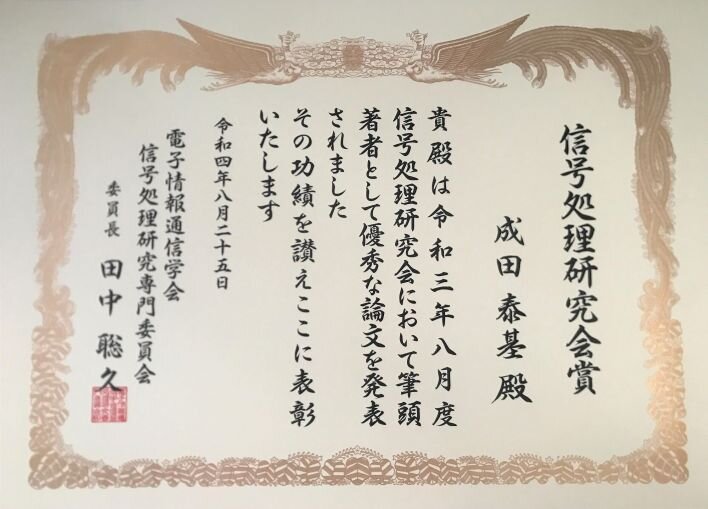 信号処理研究会賞
成田泰基殿
貴殿は令和三年八月度
信号処理研究会において筆頭
著者として優秀な論文を発表
されました
その功績を讃えここに表彰
いたします
令和四年八月二十五日
電子情報通信学会
信号処理研究専門委員会
委員長 田中聡久